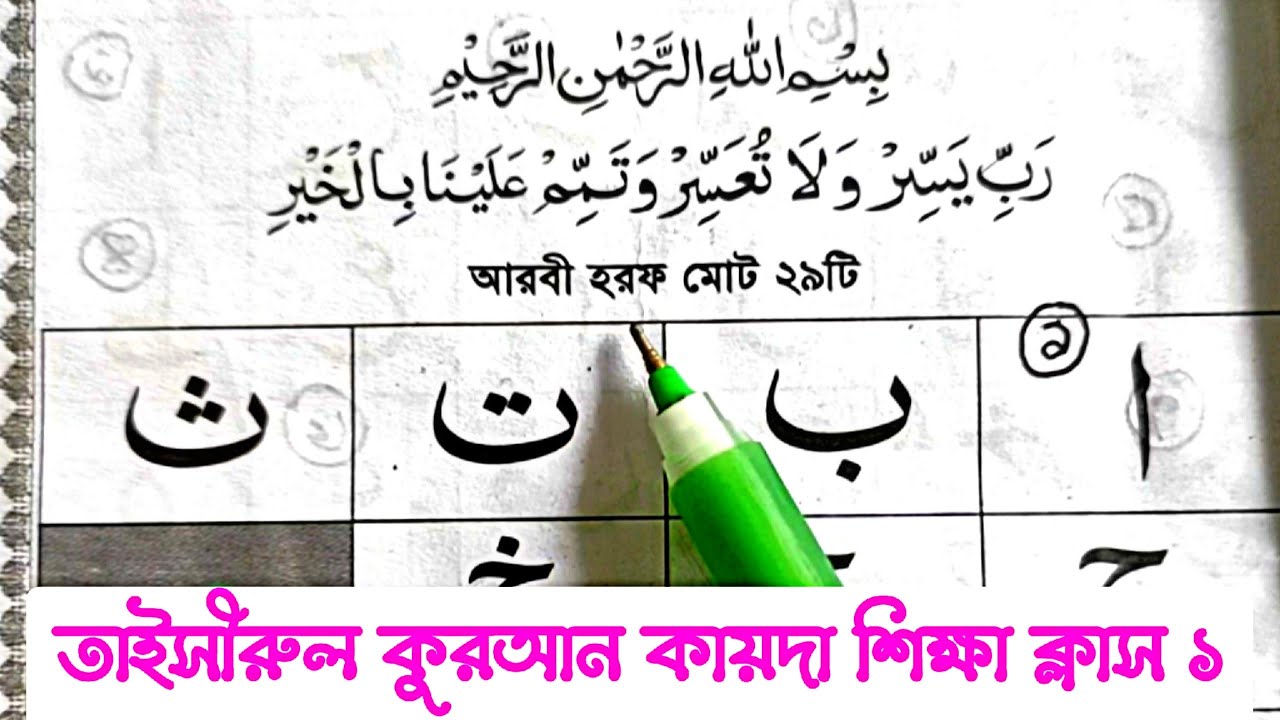 بِسْمِ اللهِ الرَّحْمٰنِ الرَّحِيْمِ
رَبِّ يَسِّرْ وَلَا تُعَسِّرْ وَتَمِّمْ عَلَيْنَا بِالْخَيْرِ
আরবী হরফ মোট ২৯টি
১
ا ب ت ث
خ
তাইসীরুল কুরআন কায়দা শিক্ষা ক্লাস ১